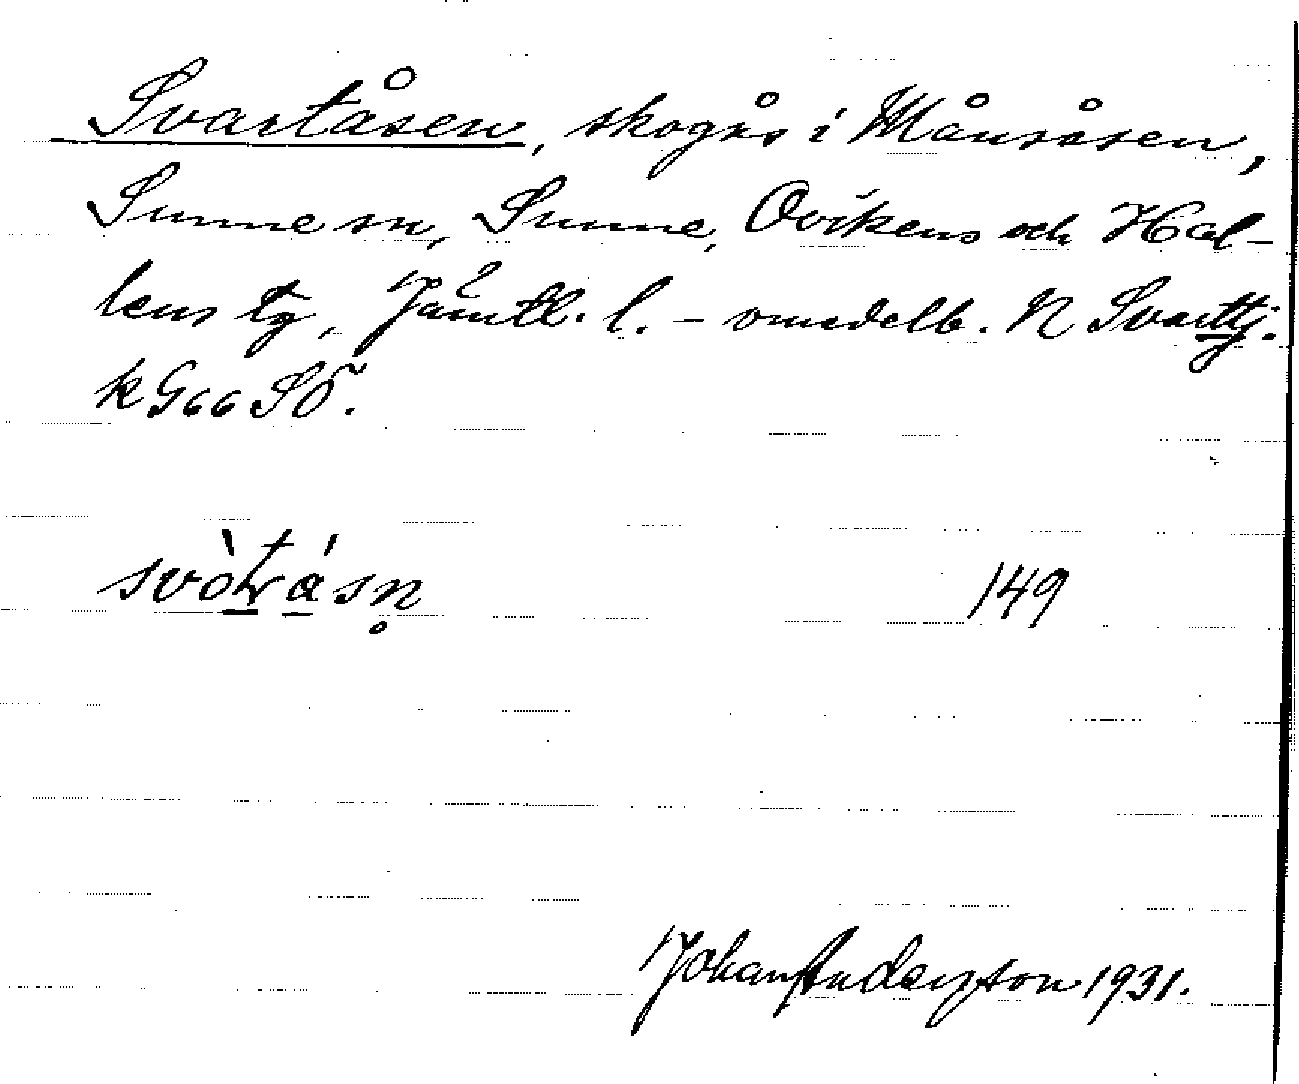 Svartåsen, skogås i Månsåsen,
Sunne sn, Sunne, Ovikens och Hal-
lens tg, Jämtl. l. – omedelb. N Svarttj.
k G66 SÖ.
svòtrásn̥
149
Johan Anderzson 1931.